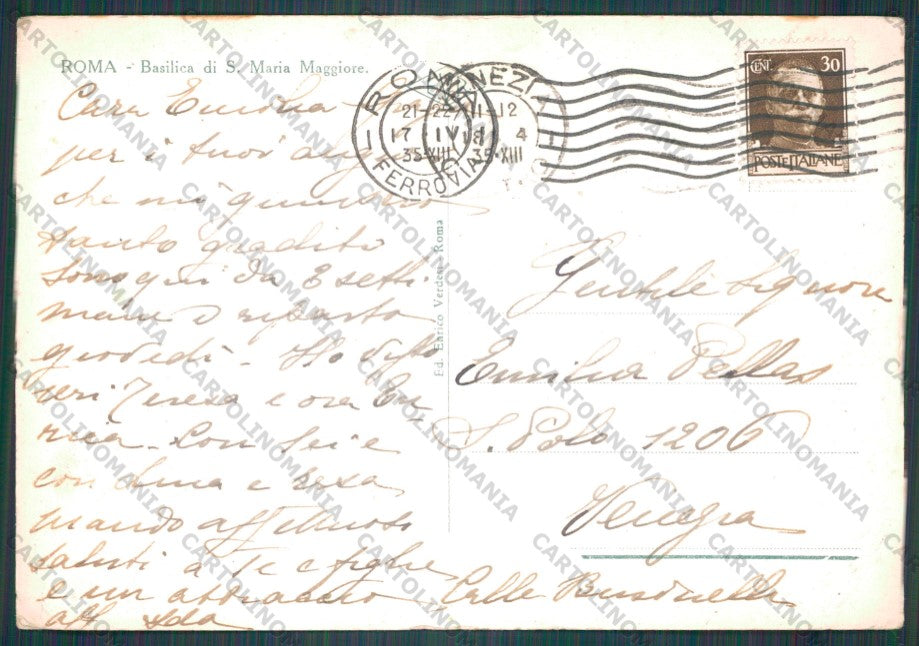 ROMA - Basilica di S. Maria Maggiore.
Cara Emilia
per i tuoi
che mi
tanto gradito
sono qui da 3 setti
mane e riparto
giovedì - Ho visto
ieri Teresa e ora
con lei e
con
mando affettuosi
saluti a te e figlie
e un abbraccio
aff Ida
ROMA
21-22
17 IV
35-XIII
FERROVIA
VENEZIA
11-12
4
35-XIII
CENT. 30
POSTE ITALIANE
Ed. Enrico Verdesi Roma
Gentile Signora
Emilia Pellas
S. Polo 1206
Venezia
Calle Businello
CARTOLINOMANIA